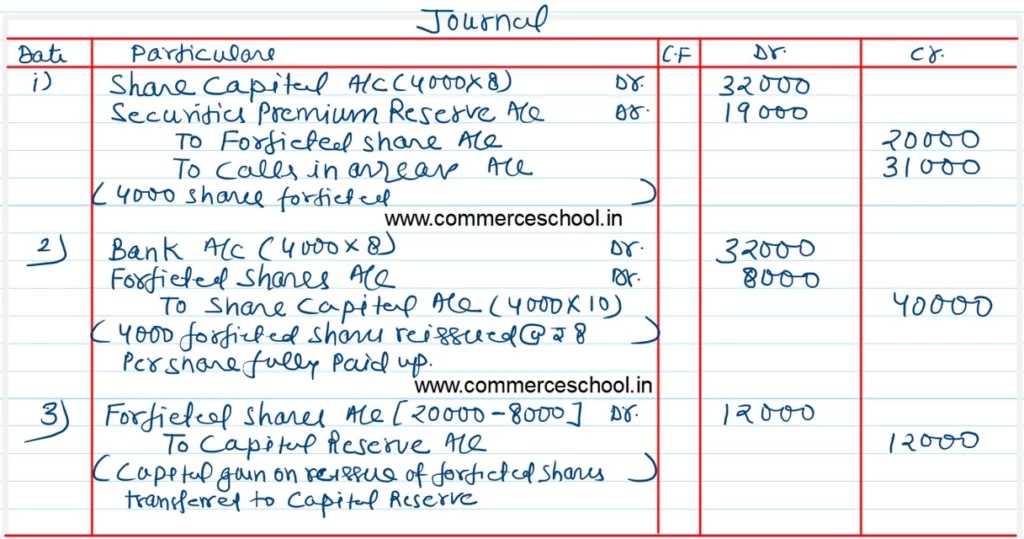 Journal
Date Particulars C.F Dr. Cr.
i) Share Capital A/C (4000×8) Dr. 32000
Securities Premium Reserve A/c Dr. 19000
To Forficted share A/c 20000
To Calls in arrear A/c 31000
(4000 shares forficted)
www.commerceschool.in
2) Bank A/C (4000×8) Dr. 32000
Forficted shares A/c Dr. 8000
To Share Capital A/c (4000×10) 40000
(4000 forficted shares reissued @ ₹ 8)
Per share fully paid up.
www.commerceschool.in
3) Forficted shares A/c [20000-8000] Dr. 12000
To Capital Reserve A/c 12000
(Capital gain on reissue of forficted shares)
transferred to Capital Reserve